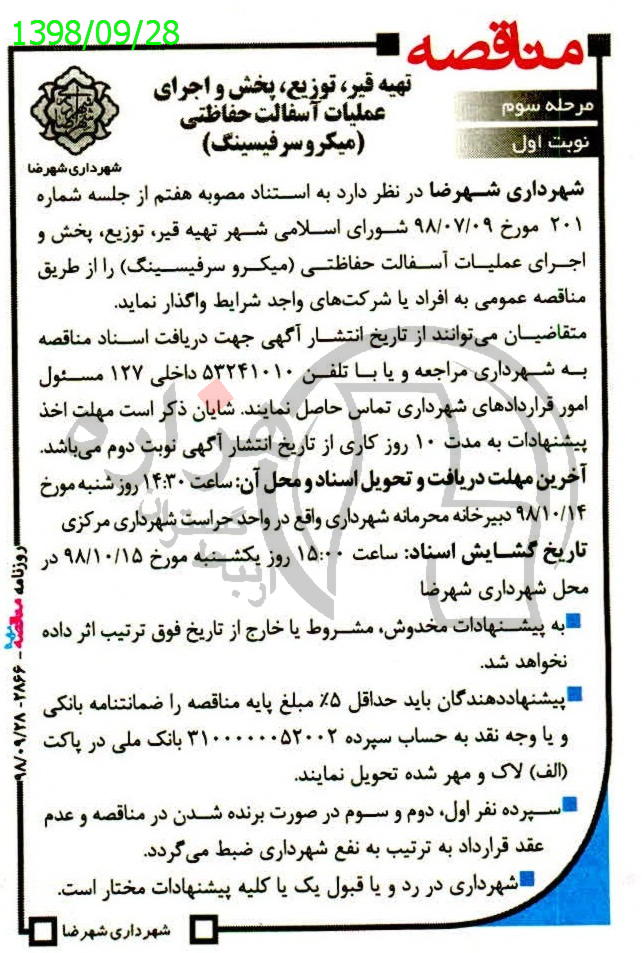 1398/09/28
مناقصه
مرحله سوم
نوبت اول
تهیه قیر، توزیع، پخش و اجرای
عملیات آسفالت حفاظتی
(میکروسرفیسینگ)
شهرداری شهرضا
شهرداری شهرضا در نظر دارد به استناد مصوبه هفتم از جلسه شماره
۲۰۱ مورخ ۹۸/۰۷/۰۹ شورای اسلامی شهر تهیه قیر، توزیع، پخش و
اجرای عملیات آسفالت حفاظتی (میکرو سرفیسینگ) را از طریق
مناقصه عمومی به افراد یا شرکت‌های واجد شرایط واگذار نماید.
متقاضیان می‌توانند از تاریخ انتشار آگهی جهت دریافت اسناد مناقصه
به شهرداری مراجعه و یا با تلفن ۵۳۲۴۱۰۱۰ داخلی ۱۲۷ مسئول
امور قراردادهای شهرداری تماس حاصل نمایند. شایان ذکر است مهلت اخذ
پیشنهادات به مدت ۱۰ روز کاری از تاریخ انتشار آگهی نوبت دوم می‌باشد.
آخرین مهلت دریافت و تحویل اسناد و محل آن: ساعت ۱۴:۳۰ روز شنبه مورخ
۹۸/۱۰/۱۴ دبیرخانه محرمانه شهرداری واقع در واحد حراست شهرداری مرکزی
تاریخ گشایش اسناد: ساعت ۱۵:۰۰ روز یکشنبه مورخ ۹۸/۱۰/۱۵ در
محل شهرداری شهرضا
به پیشنهادات مخدوش، مشروط یا خارج از تاریخ فوق ترتیب اثر داده
نخواهد شد.
پیشنهاددهندگان باید حداقل ۵٪ مبلغ پایه مناقصه را ضمانتنامه بانکی
و یا وجه نقد به حساب سپرده ۳۱۰۰۰۰۰۰۵۲۰۰۲ بانک ملی در پاکت
(الف) لاک و مهر شده تحویل نمایند.
سپرده نفر اول، دوم و سوم در صورت برنده شدن در مناقصه و عدم
عقد قرارداد به ترتیب به نفع شهرداری ضبط می‌گردد.
شهرداری در رد و یا قبول یک یا کلیه پیشنهادات مختار است.
شهرداری شهرضا
روزنامه مناقصه - ۲۸۶۶- ۹۸/۰۹/۲۸
هزاره